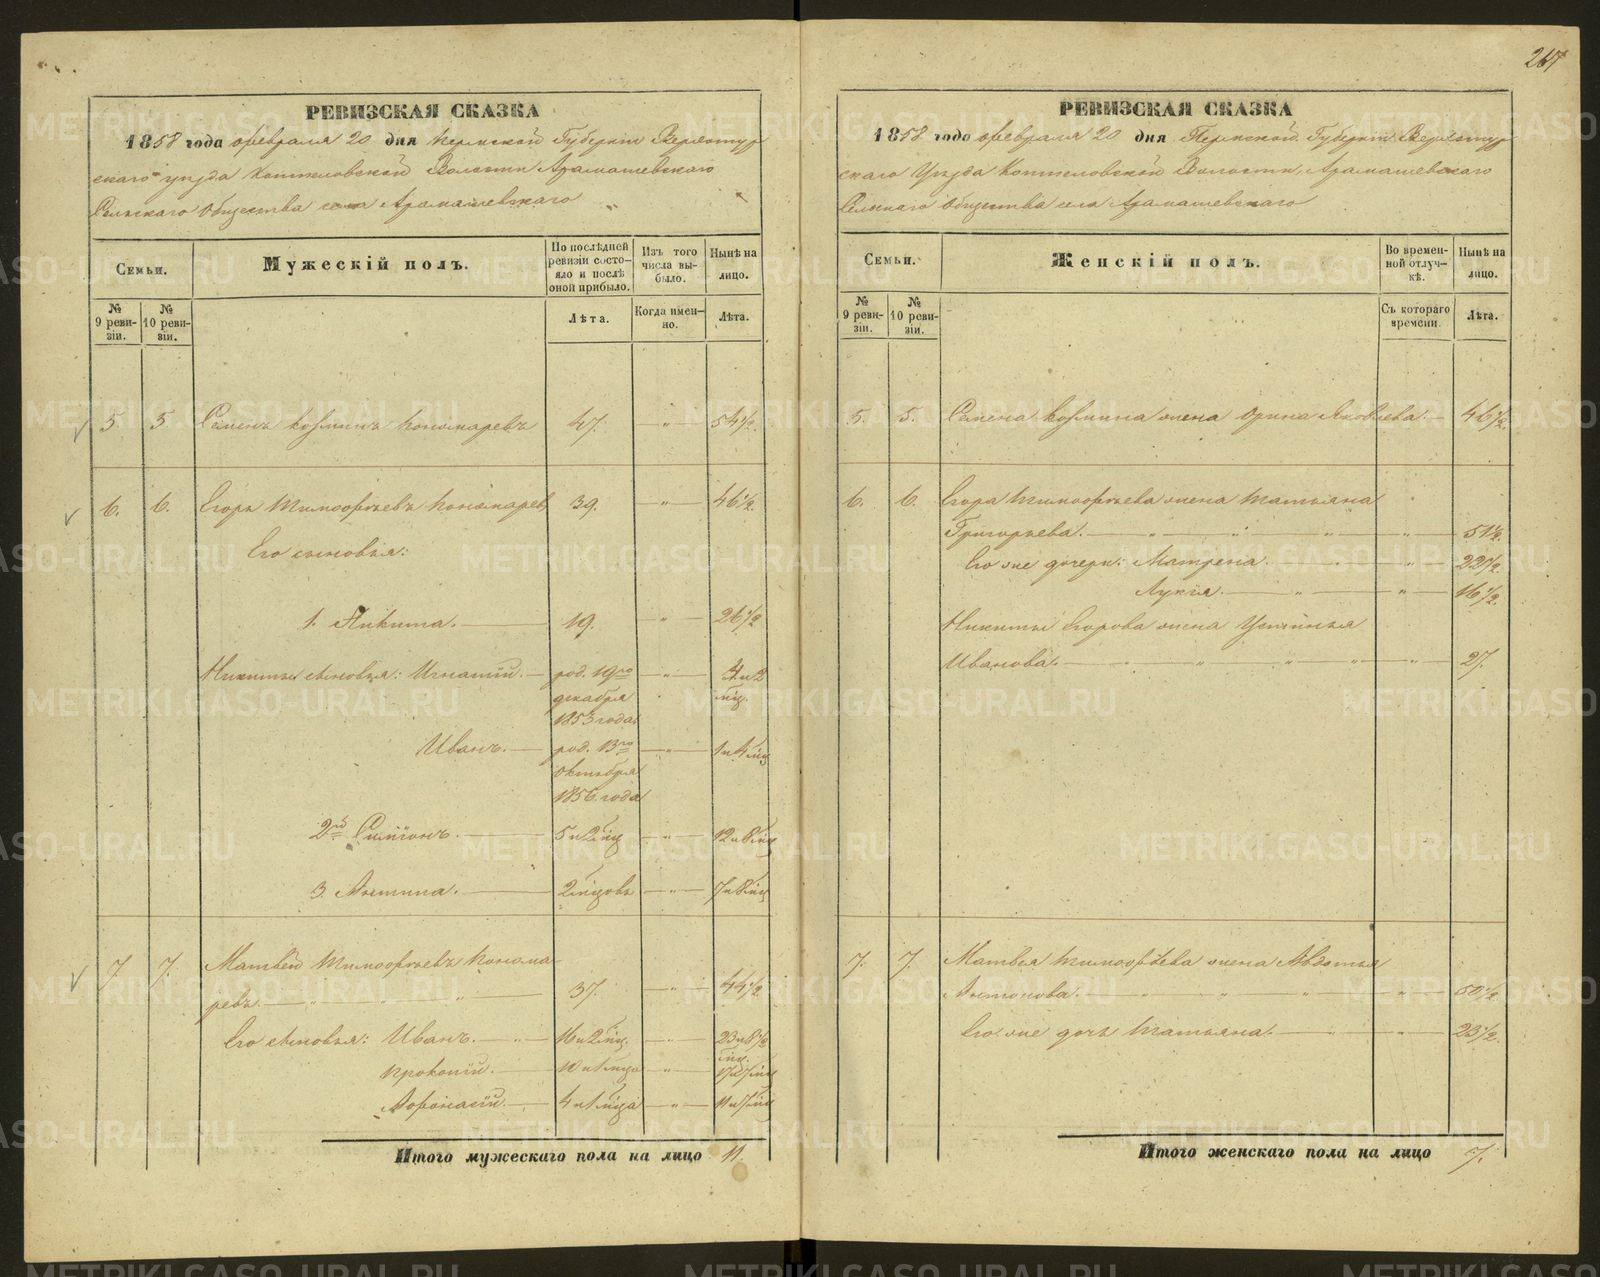 267
РЕВИЗСКАЯ СКАЗКА
1858 года февраля 20 дня Пермской Губернiи Верхотур
скаго уѣзда Коптеловской Волости Арамашевскаго
Сельскаго Общества села Арамашевскаго
Семьи.
Мужескій полъ.
По послѣдней ревизіи состояло и послѣ оной прибыло.
Изъ того числа выбыло.
Нынѣ на лицо.
№ 9 ревизіи.
№ 10 ревизіи.
Лѣта.
Когда именно.
Лѣта.
5 5 Семенъ Козминъ Пономаревъ 47. — „ — 54½.
6. 6. Егоръ Тимофѣевъ Пономаревъ 39. — „ — 46½.
Его сыновья:
1. Никита. — 19. — „ — 26½
Никиты сыновья: Игнатій. — род. 19го — „ — 4 и 2
декабря мѣц.
1853 года
Иванъ. — род. 13го — „ — 1 и 4 мѣц
октября
1856 года
2й Симіонъ. — 5 и 2 мѣц — „ — 12 и 8 мѣц
3. Антипа. — 2 мѣцовъ — „ — 7 и 8 мѣц
7 7. Матвей Тимофѣевъ Понома
ревъ. — „ — „ — 37. — „ — 44½
Его сыновья: Иванъ. — „ — 16 и 2 мѣц. — „ — 23 и 8½
мѣц.
Прокопій. — 10 и 1 мѣца — „ — 17 и 7 мѣц
Афонасій. — 4 и 1 мѣца — „ — 11 и 7 мѣц
Итого мужескаго пола на лицо 11.
РЕВИЗСКАЯ СКАЗКА
1858 года февраля 20 дня Пермской Губернiи Верхотур
скаго Уѣзда Коптеловской Волости, Арамашевскаго
Сельскаго Общества села Арамашевскаго
Семьи.
Женскій полъ.
Во временной отлучкѣ.
Нынѣ на лицо.
№ 9 ревизіи.
№ 10 ревизіи.
Съ котораго времени.
Лѣта.
5. 5. Семена Козмина жена Орина Яковлева. — 46½.
6. 6. Егора Тимофѣева жена Татьяна
Григорьева. — „ — „ — „ — „ — 51½.
Его же дочери: Матрена. — „ — „ — 22½.
Лукія. — „ — „ — 16½.
Никиты Егорова жена Устинья
Иванова. — „ — „ — „ — „ — „ — 27.
7. 7. Матвея Тимофѣева жена Авдотья
Антонова. — „ — „ — „ — „ — 50½.
Его же дочь Татьяна. — „ — „ — 23½.
Итого женскаго пола на лицо 7.
METRIKI.GASO-URAL.RU